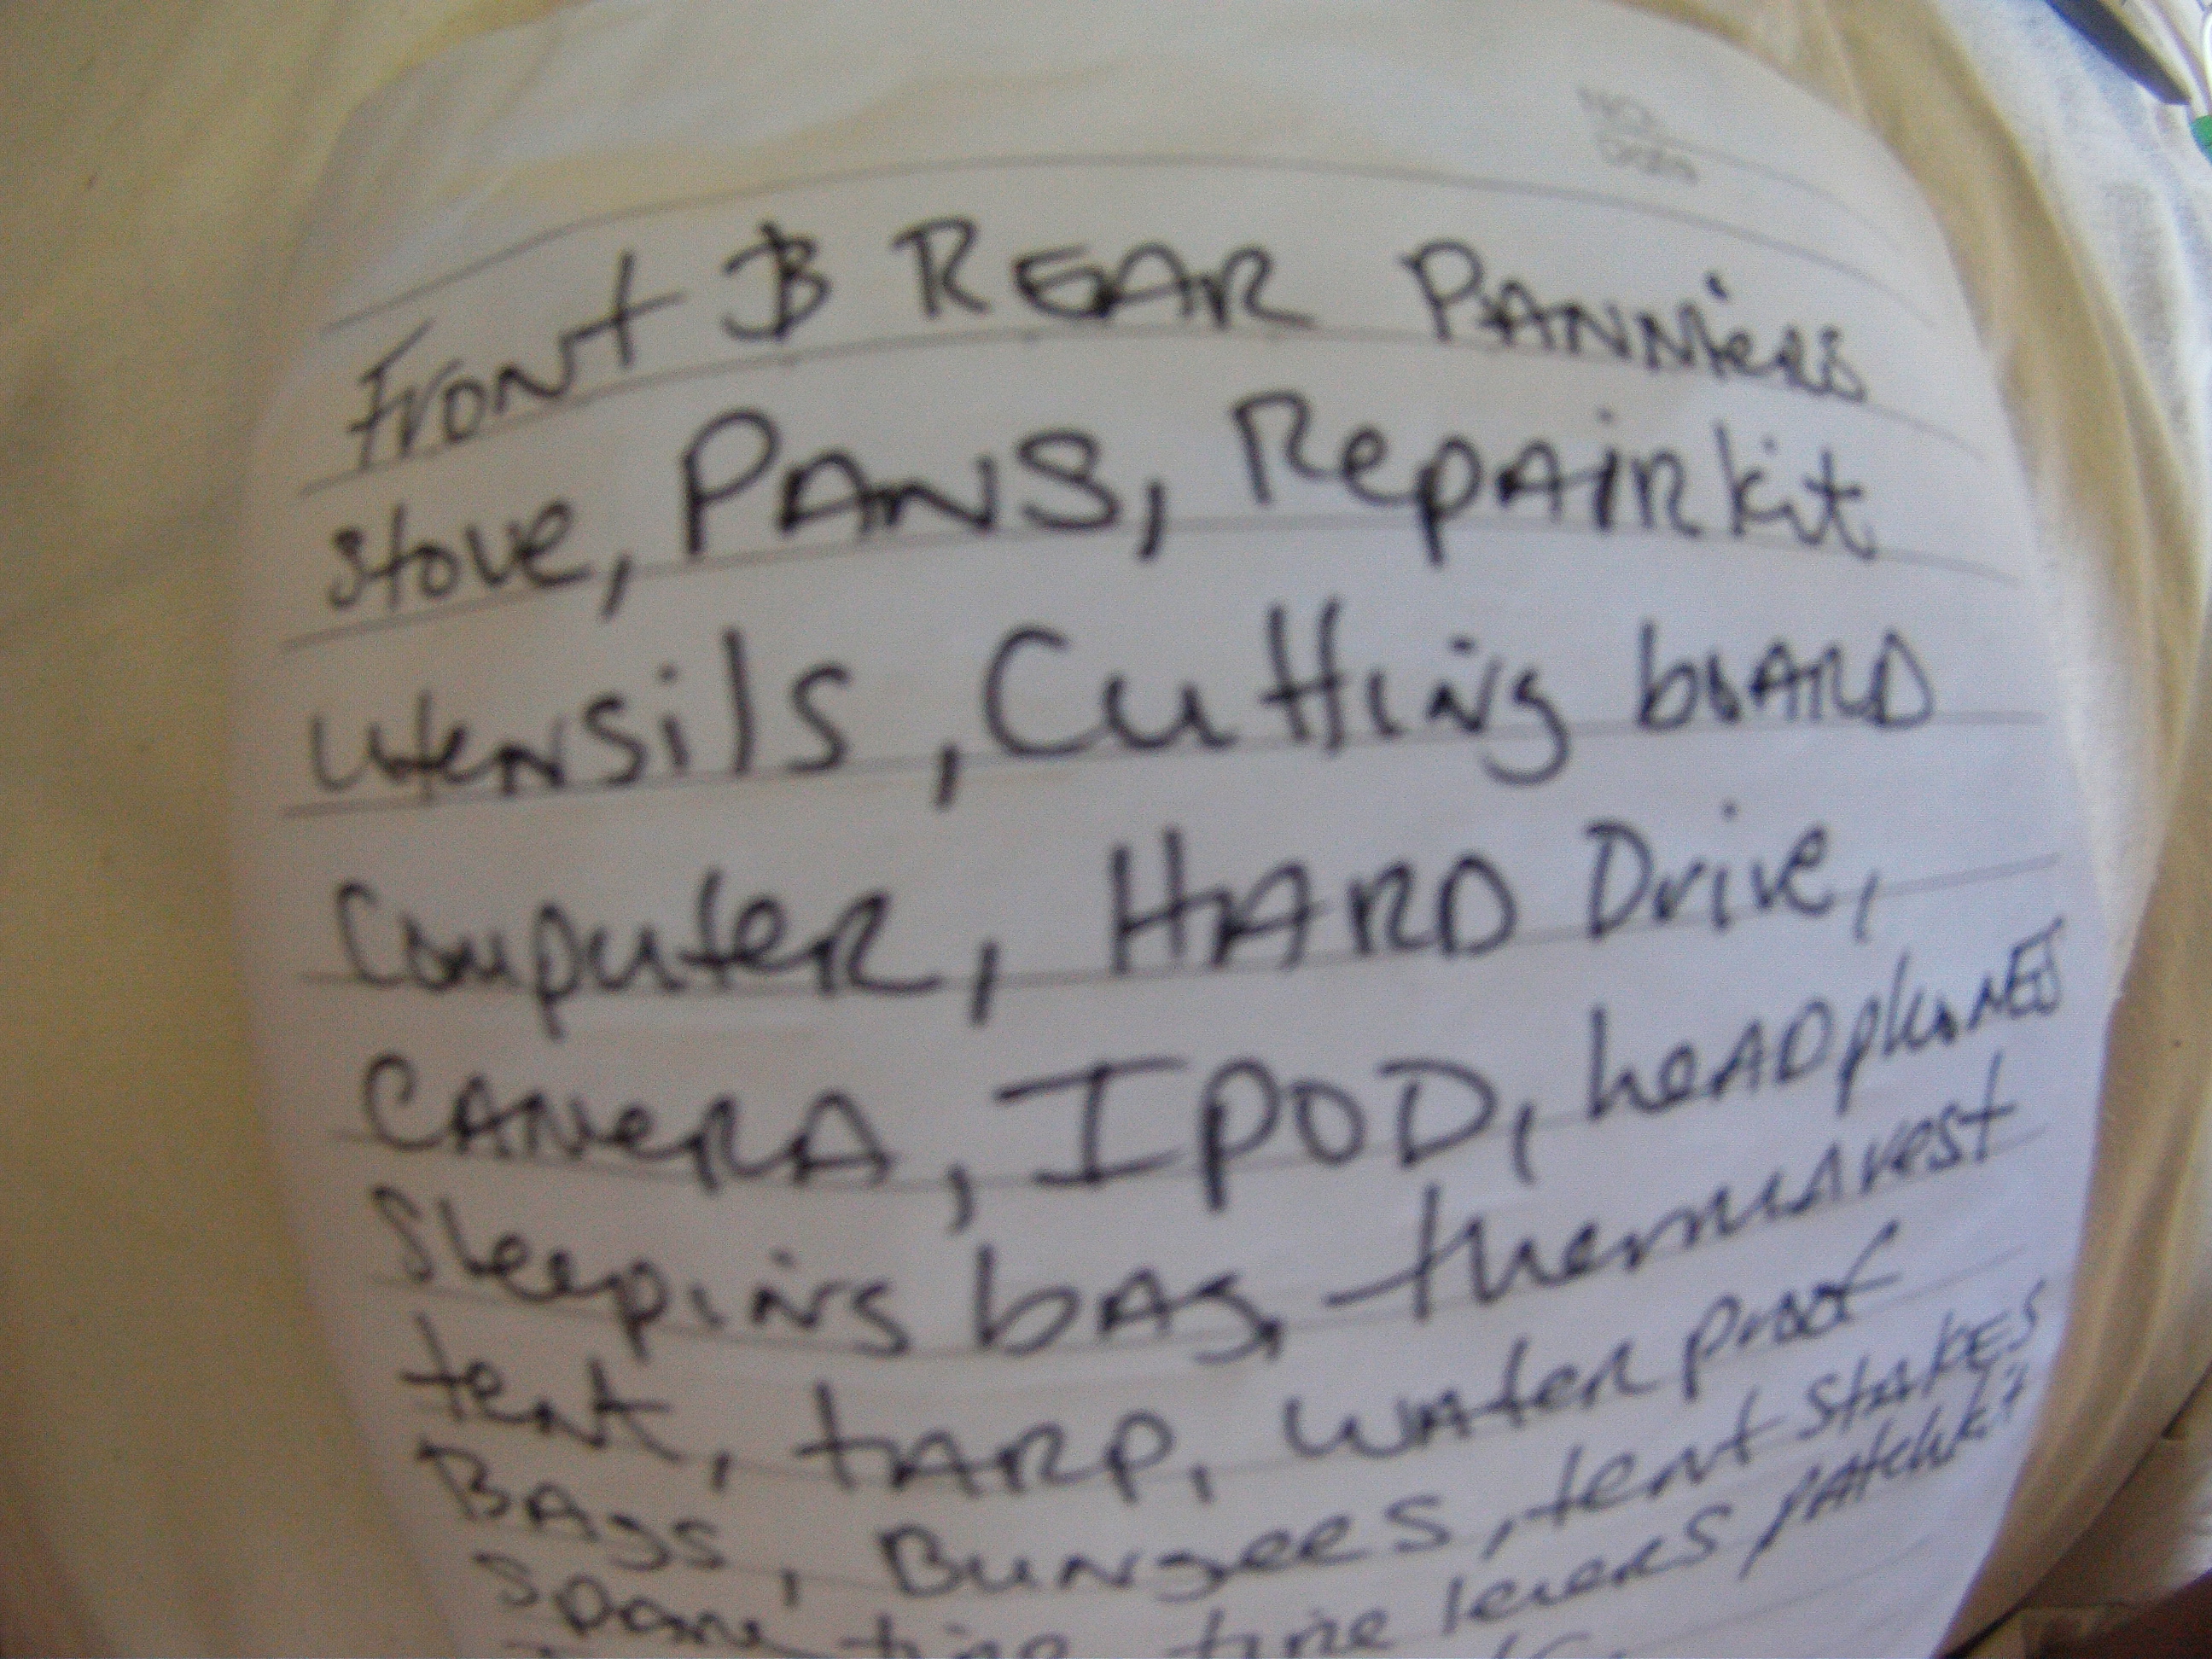 NO.
DATE
Front & REAR PANNiers
Stove, PANS, RepAIR kit
Utensils, Cutting boARD
Computer, HARD Drive,
CAMERA, IPOD, heADphoNES
Sleeping bAg, thermArest
tent, tARP, WAter proof
BAgs, BuNgees, tent StAKES
Spare tire, tire levers, pAtchkit